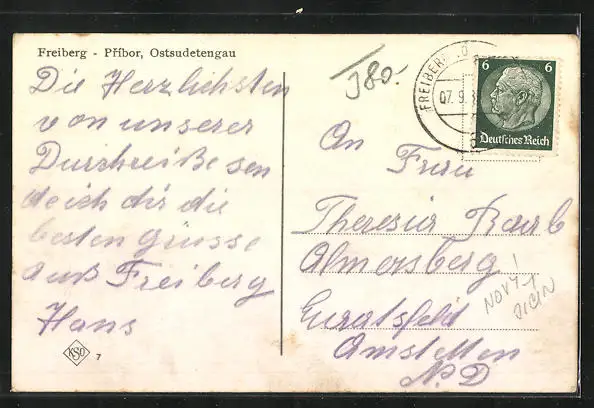 Freiberg - Příbor, Ostsudetengau
Die Herzlichsten
von unserer
Durchreiße sen
de ich dir die
besten Grüsse
auß Freiberg
Hans
7
380.
FREIBERG
07.9.
6 6
Deutsches Reich
An Frau
Theresia Raab
Almersberg!
Euratsfeld
Amstetten
N.D
NOVY
JICIN